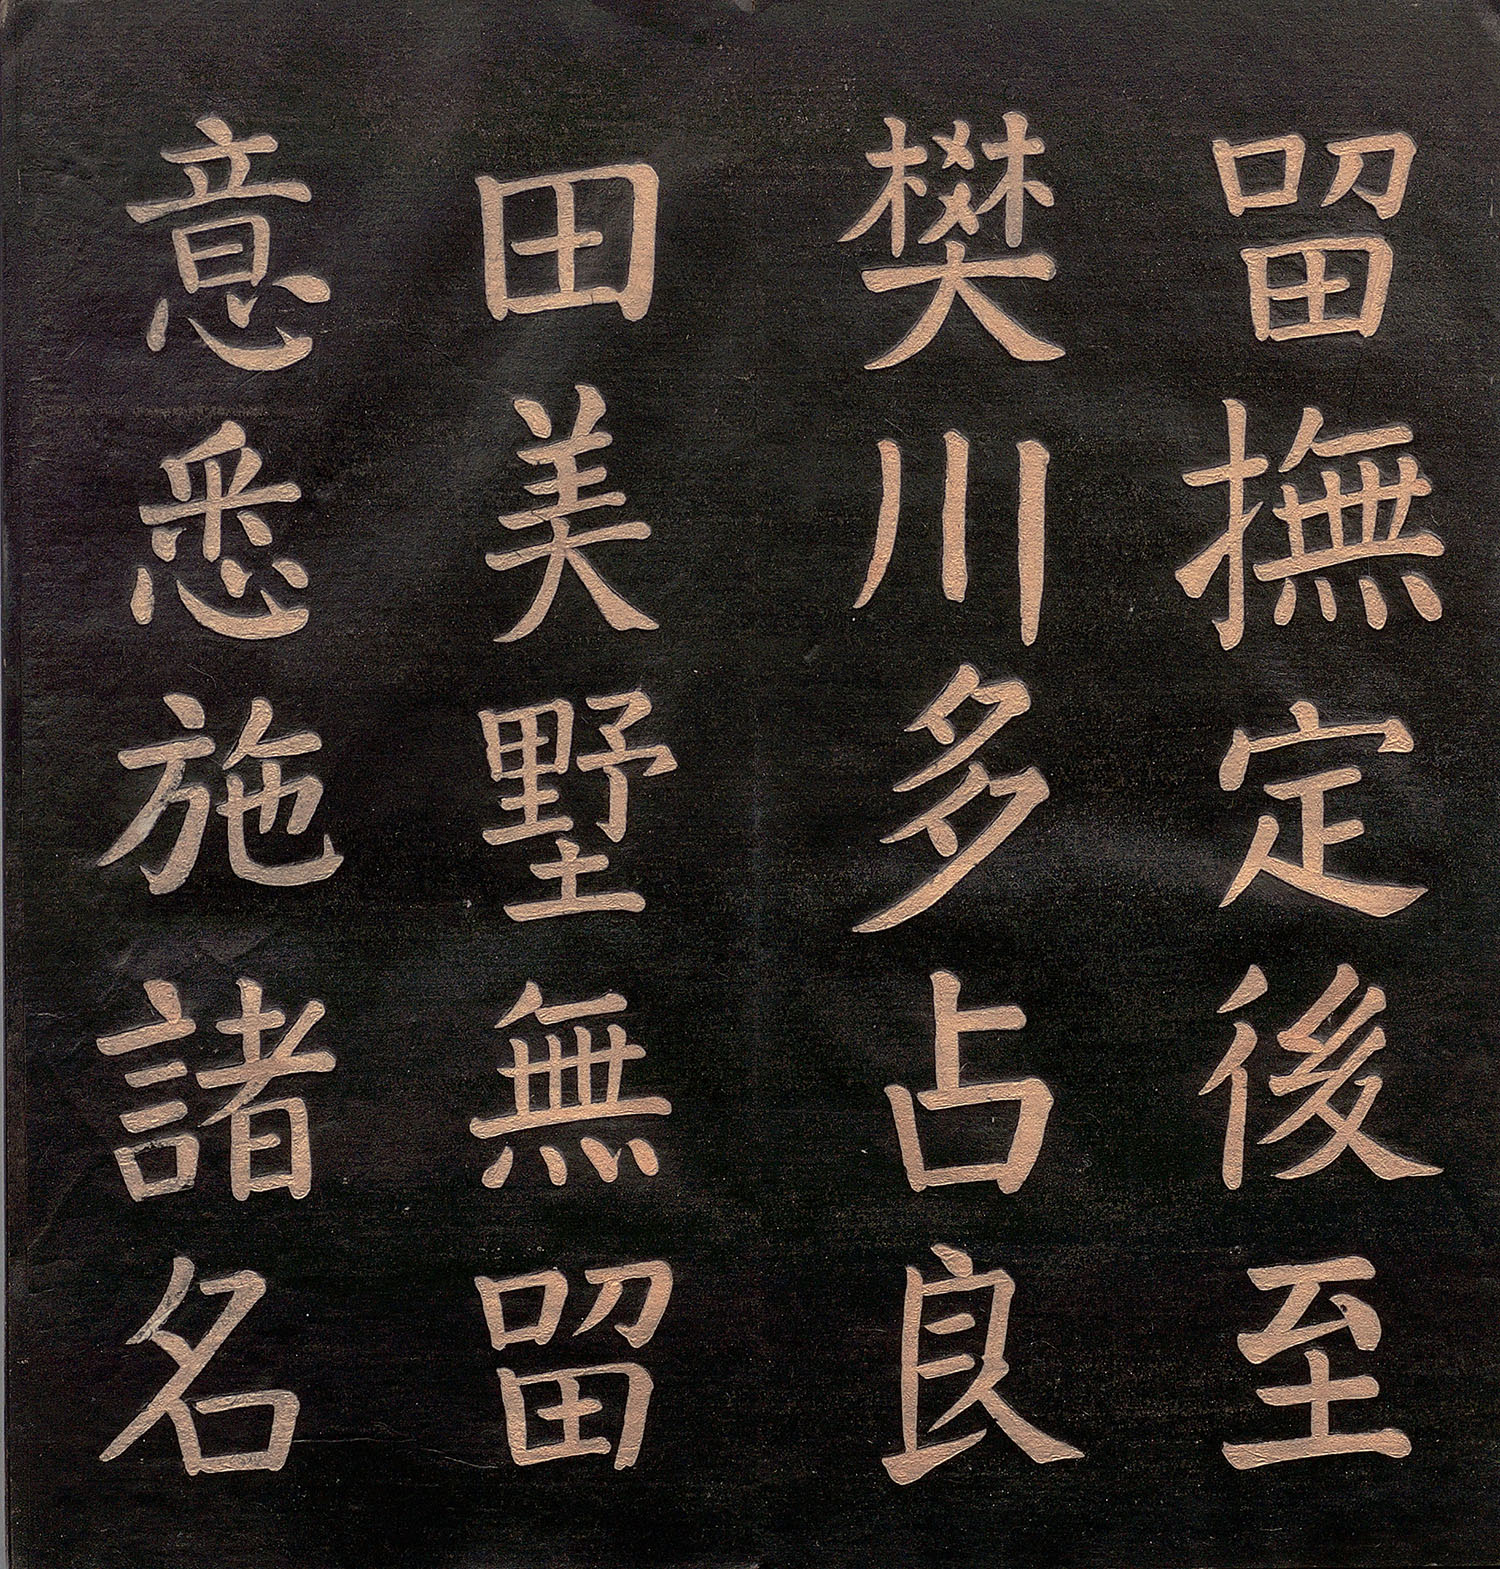 留撫定後至
樊川多占良
田美墅無留
意悉施諸名